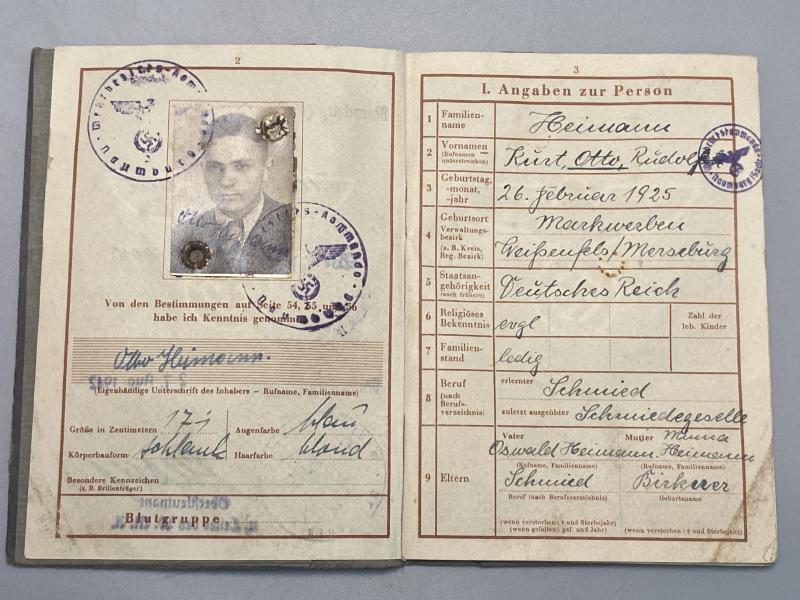 2
Von den Bestimmungen auf Seite 54, 55 und 56
habe ich Kenntnis genommen.
Otto Heimann.
(Eigenhändige Unterschrift des Inhabers – Rufname, Familienname)
Größe in Zentimetern 171 Augenfarbe blau
Körperbauform schlank Haarfarbe blond
Besondere Kennzeichen
(z. B. Brillenträger)
Oberstleutnant
Blutgruppe
3
I. Angaben zur Person
1 Familien-
name
Heimann
2 Vornamen
(Rufnamen
unterstreichen)
Kurt, Otto, Rudolf
3 Geburtstag,
-monat,
-jahr
26. Februar 1925
4 Geburtsort
Verwaltungs-
bezirk
(z. B. Kreis,
Reg. Bezirk)
Markwerben
Weißenfels/Merseburg
5 Staatsan-
gehörigkeit
(auch frühere)
Deutsches Reich
6 Religiöses
Bekenntnis
evgl
Zahl der
leb. Kinder
7 Familien-
stand
ledig
8 Beruf
(nach
Berufs-
verzeichnis)
erlernter
Schmied
zuletzt ausgeübter Schmiedegeselle
9 Eltern
Vater
Oswald Heimann
(Rufname, Familienname)
Schmied
Beruf (nach Berufsverzeichnis)
(wenn verstorben: † und Sterbejahr)
(wenn gefallen: gef. und Jahr)
Mutter Minna
Heimann
(Rufname, Familienname)
Birkner
Geburtsname
(wenn verstorben: † und Sterbejahr)